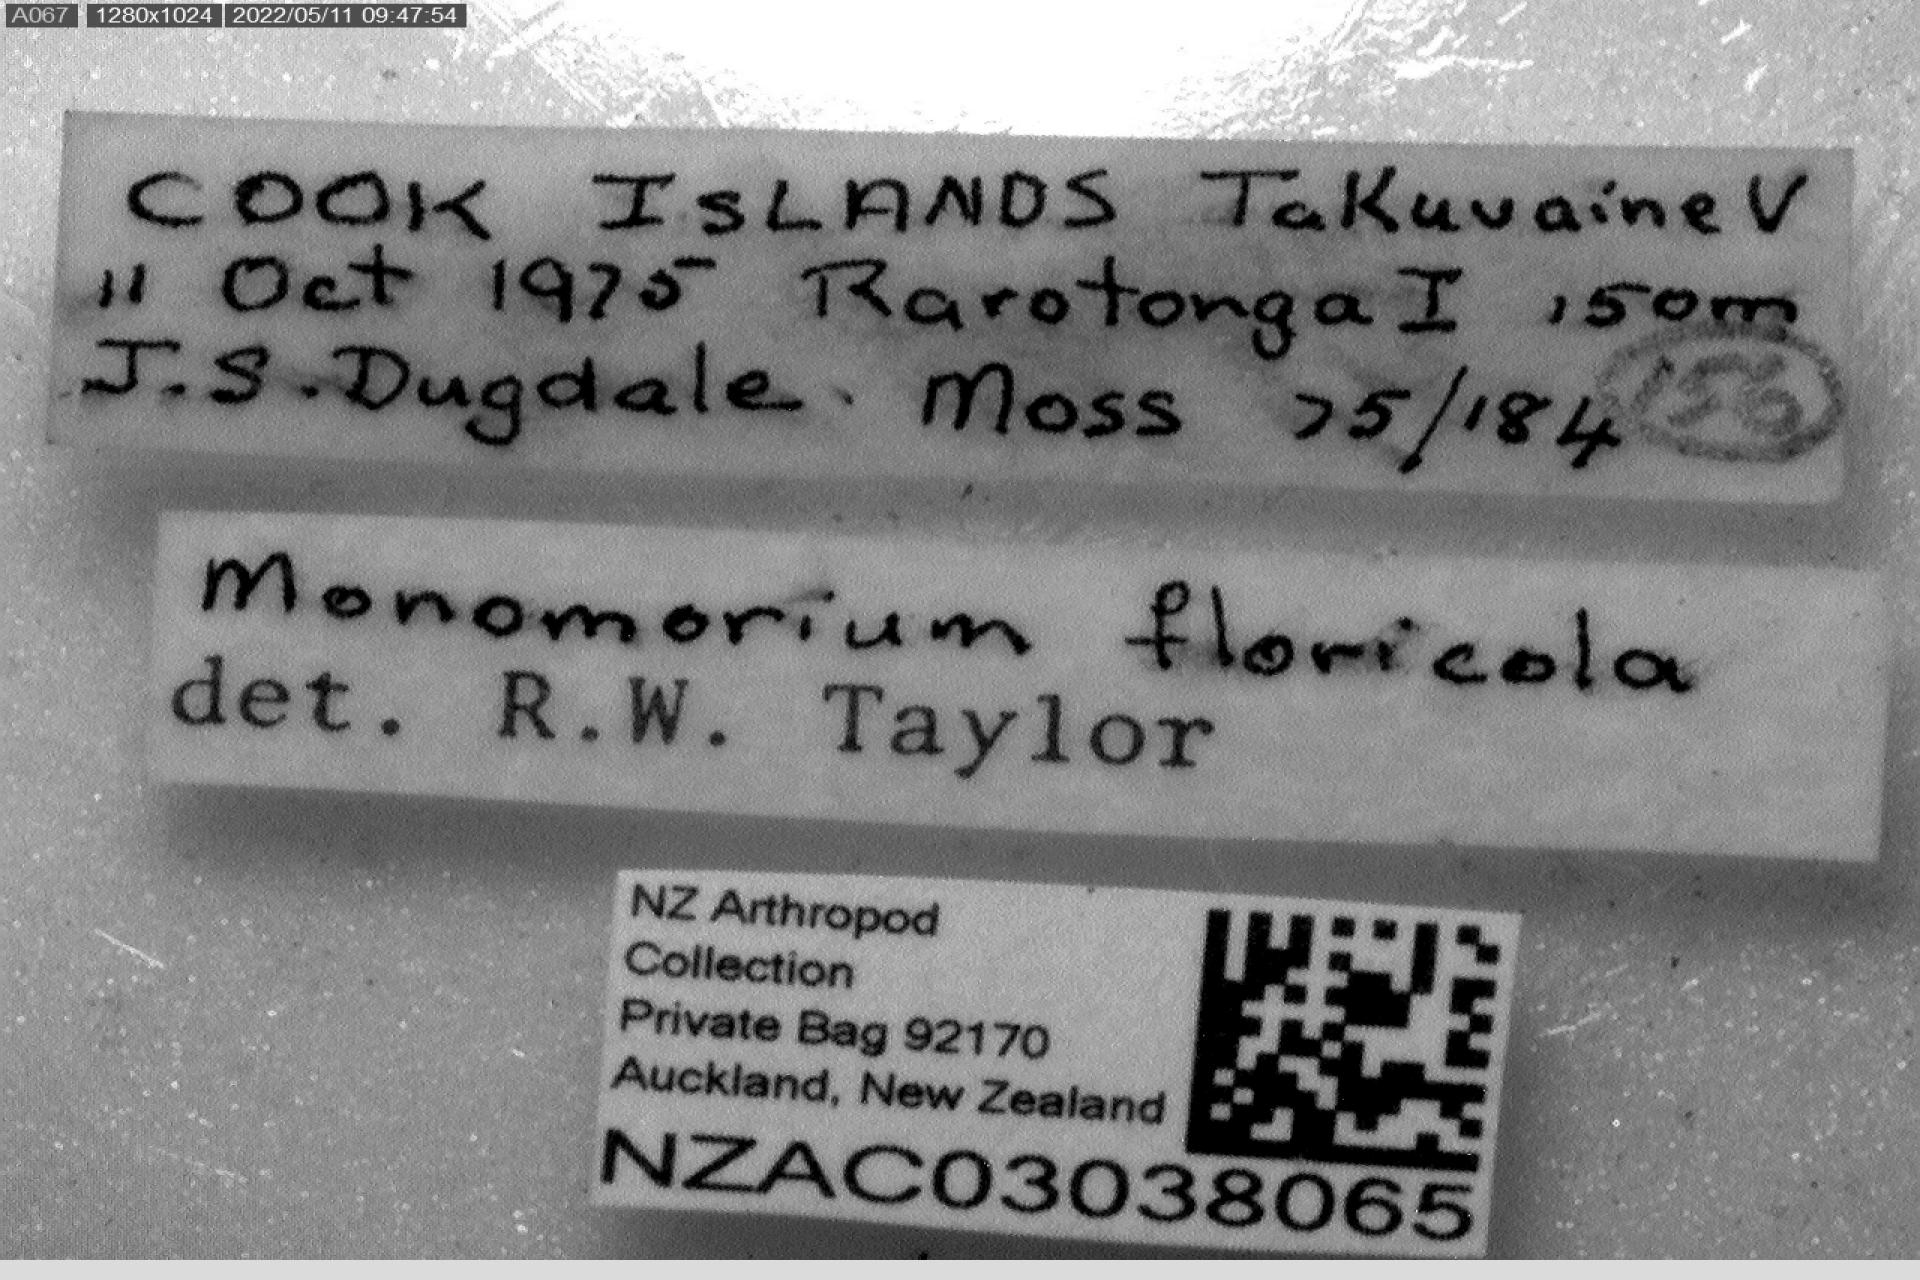 A067 1280x1024 2022/05/11 09:47:54
COOK ISLANDS Takuvaine V
11 Oct 1975 Rarotonga I 150m
J.S. Dugdale. Moss 75/184
Monomorium floricola
det. R.W. Taylor
NZ Arthropod
Collection
Private Bag 92170
Auckland, New Zealand
NZAC03038065